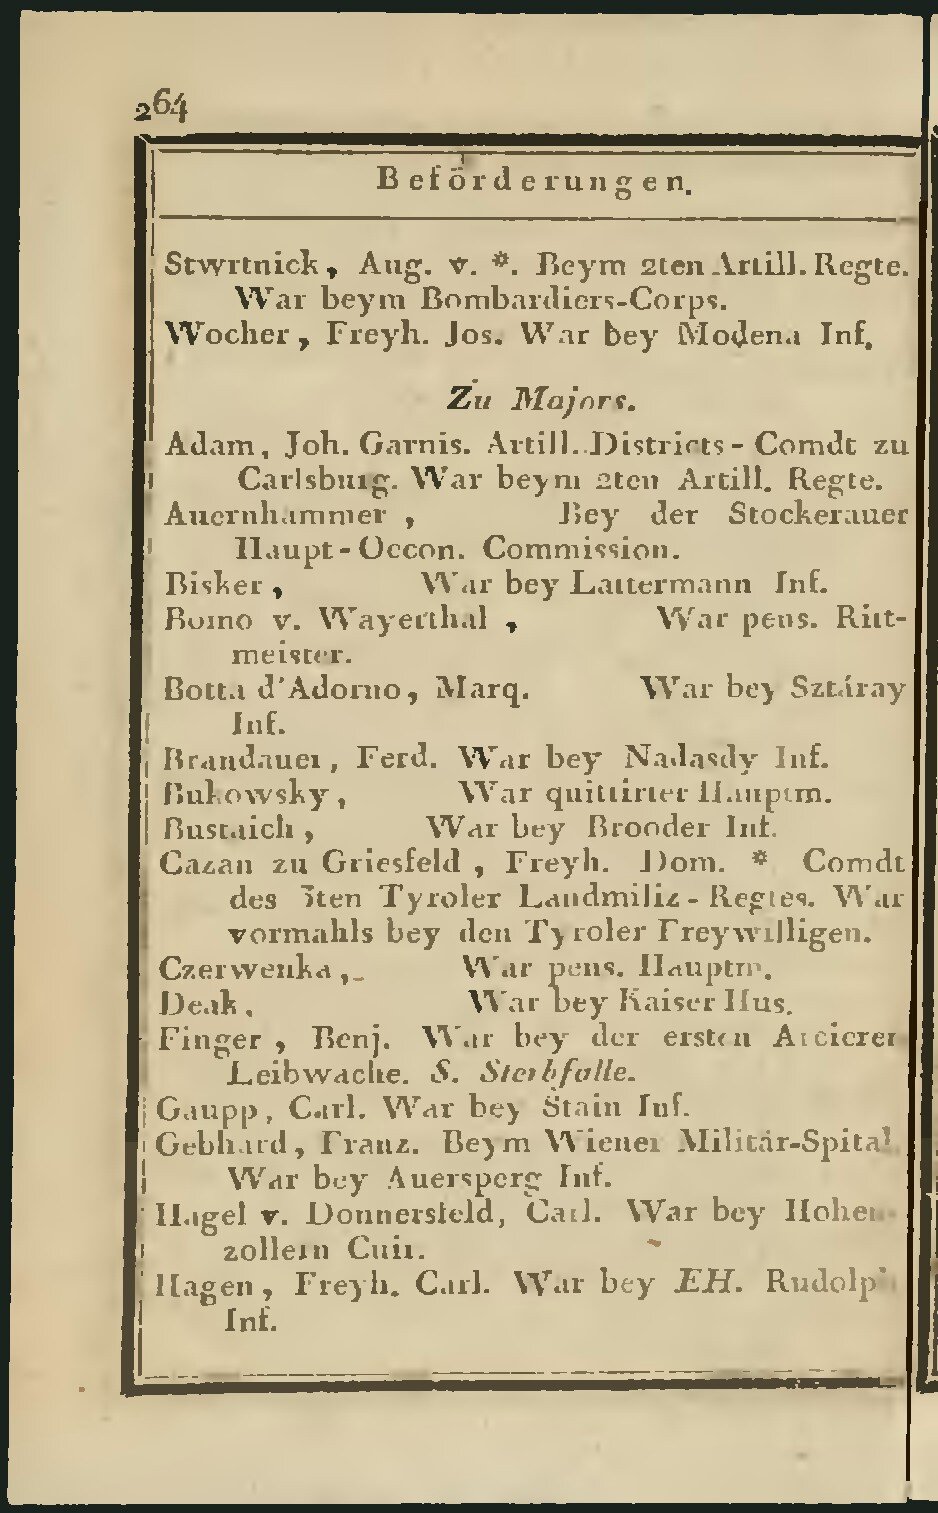 264
Beförderungen.
Stwrtnick, Aug. v. *. Beym 2ten Artill. Regte.
War beym Bombardiers-Corps.
Wocher, Freyh. Jos. War bey Modena Inf.
Zu Majors.
Adam, Joh. Garnis. Artill. Districts-Comdt zu
Carlsburg. War beym 2ten Artill. Regte.
Auernhammer, Bey der Stockerauer
Haupt-Oecon. Commission.
Bisker, War bey Lattermann Inf.
Bomo v. Wayerthal, War pens. Ritt-
meister.
Botta d'Adorno, Marq. War bey Sztáray
Inf.
Brandauer, Ferd. War bey Nadasdy Inf.
Bukowsky, War quittirter Hauptm.
Bustaich, War bey Brooder Inf.
Cazan zu Griesfeld, Freyh. Dom. * Comdt
des 3ten Tyroler Landmiliz-Regtes. War
vormahls bey den Tyroler Freywilligen.
Czerwenka, War pens. Hauptm.
Deak, War bey Kaiser Hus.
Finger, Benj. War bey der ersten Arcieren
Leibwache. S. Sterbfälle.
Gaupp, Carl. War bey Stain Inf.
Gebhard, Franz. Beym Wiener Militär-Spital.
War bey Auersperg Inf.
Hagel v. Donnersfeld, Carl. War bey Hohen-
zollern Cuir.
Hagen, Freyh. Carl. War bey EH. Rudolph
Inf.